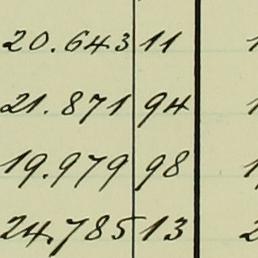 20.643 11
21.871 94
19.979 98
24.785 13